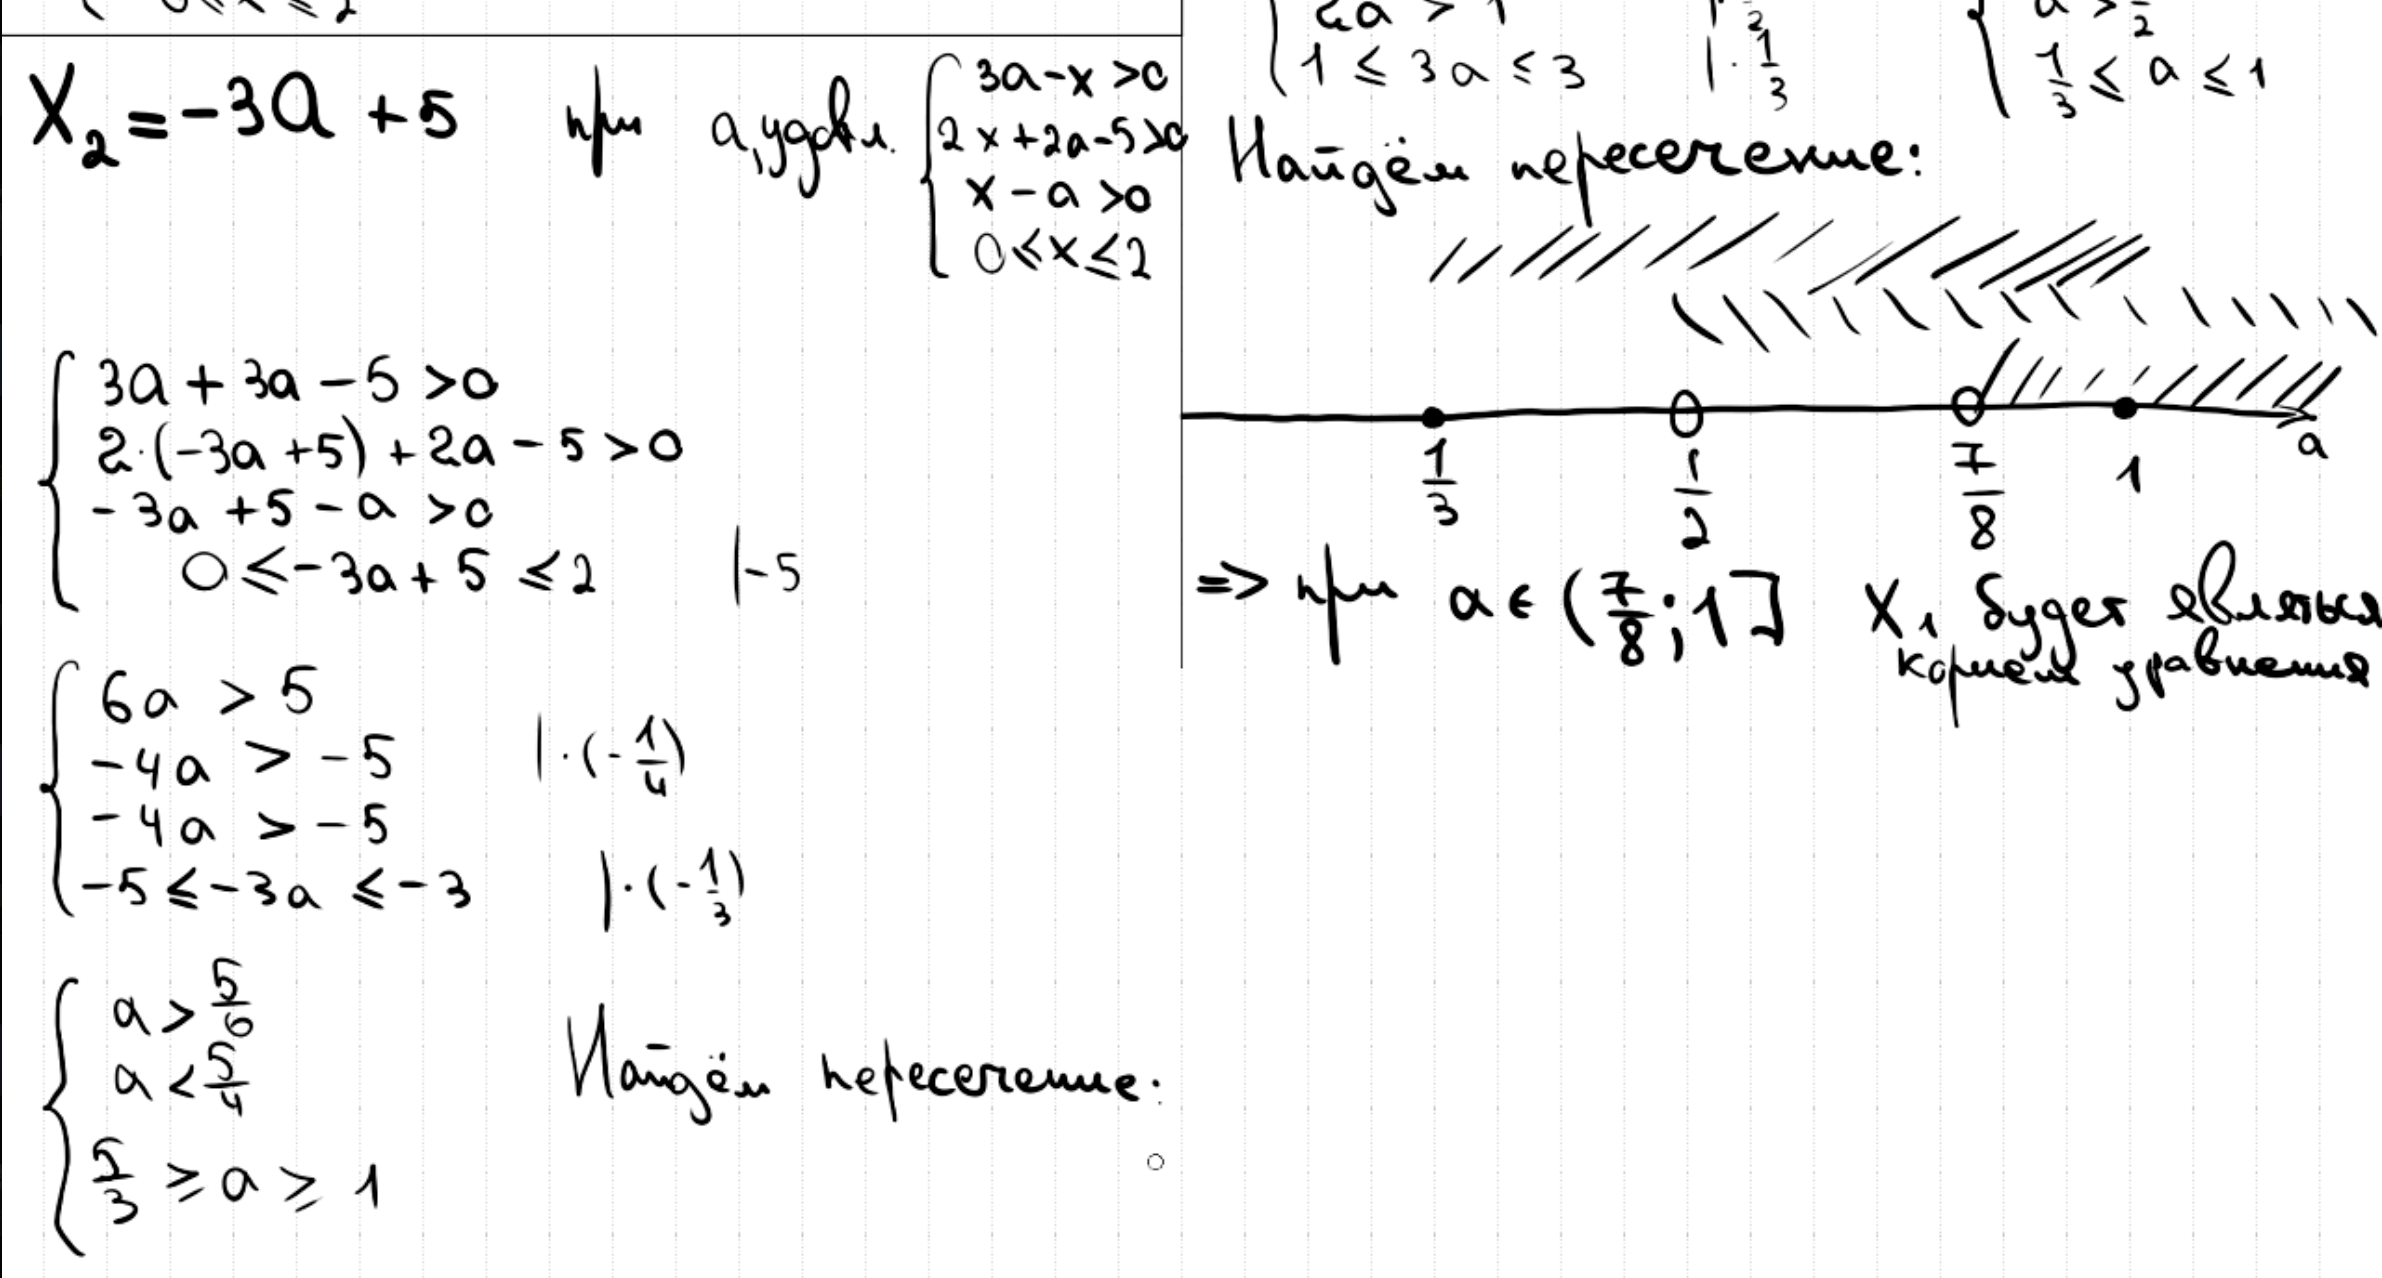 0 ≤ x ≤ 2
X₂ = -3a + 5 при a, удовл. { 3a - x > 0
2x + 2a - 5 > 0
x - a > 0
0 ≤ x ≤ 2
{ 3a + 3a - 5 > 0
2·(-3a + 5) + 2a - 5 > 0
-3a + 5 - a > 0
0 ≤ -3a + 5 ≤ 2 | -5
{ 6a > 5
-4a > -5 | ·(-1/4)
-4a > -5
-5 ≤ -3a ≤ -3 | ·(-1/3)
{ a > 5/6
a < 5/4
5/3 ≥ a ≥ 1
Найдём пересечение:
{ 2a > 1 | · 1/2 { a > 1/2
1 ≤ 3a ≤ 3 | · 1/3 1/3 ≤ a ≤ 1
Найдём пересечение:
1/3 1/2 7/8 1 a
=> при a ∈ (7/8; 1] X₁ будет являться
корнем уравнения